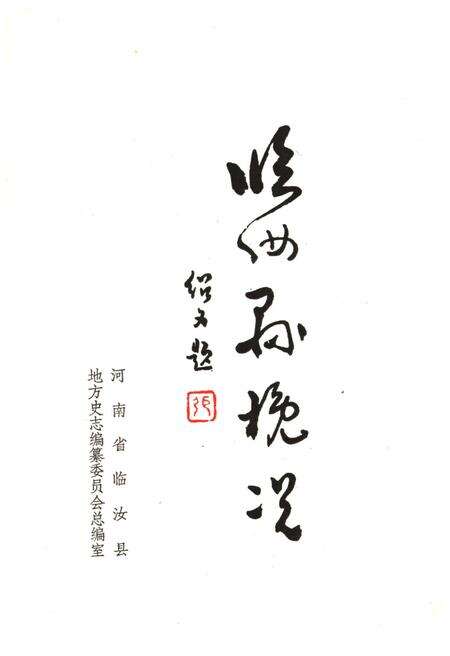 临汝县概况
绍文题
张
河南省临汝县
地方史志编纂委员会总编室